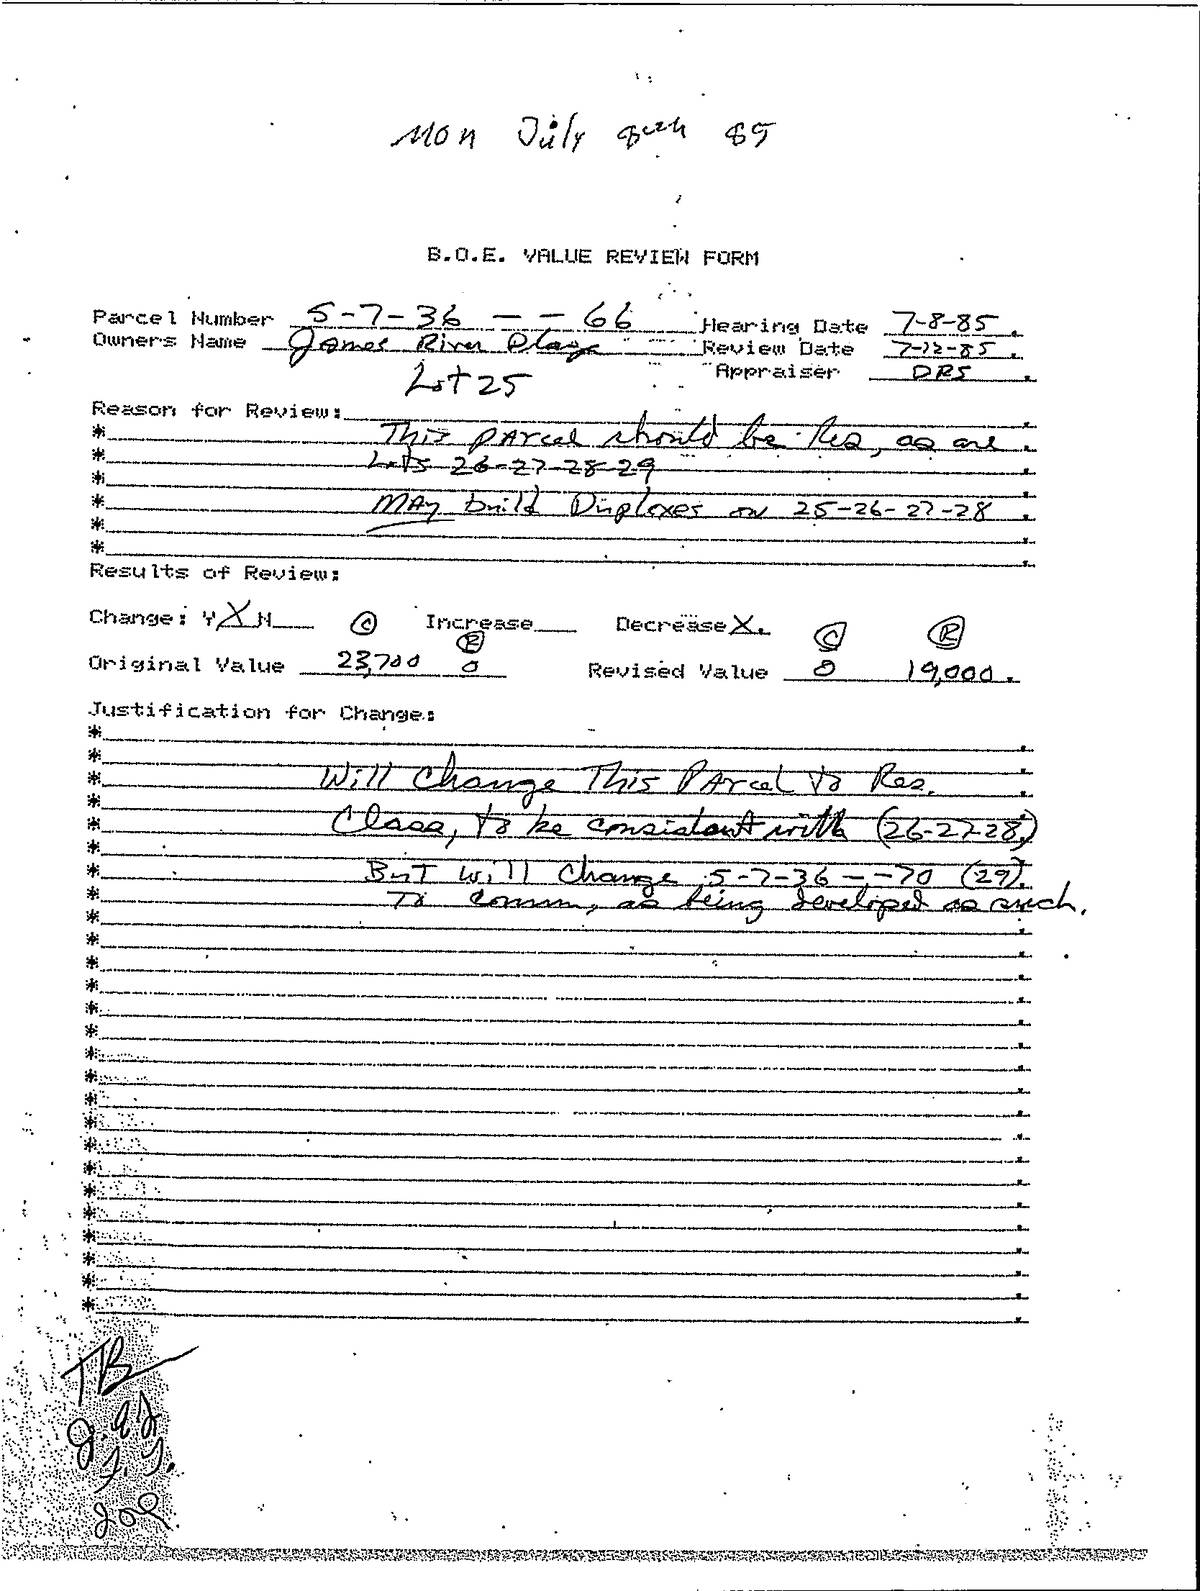 Mon July 8th 85
B.O.E. VALUE REVIEW FORM
Parcel Number 5-7-36 - - 66 Hearing Date 7-8-85.
Owners Name James River Plaza Review Date 7-12-85.
Lot 25 Appraiser DRS.
Reason for Review:
* This parcel should be Res, as are
* Lots 26-27-28-29
*
* MAy build Duplexes on 25-26-27-28
*
*
Results of Review:
Change: Y X N Ⓒ Increase Decrease X. Ⓒ Ⓡ
Ⓡ
Original Value 23,700 0 Revised Value 0 19,000.
Justification for Change:
*
*
* Will Change This PArcel to Res.
*
* Class, to be consistant with (26-27-28,)
*
* But will Change 5-7-36 - -70 (29).
* To Comm, as being developed as such.
*
*
*
*
*
*
*
*
*
*
*
*
*
*
*
*
*
*
TB